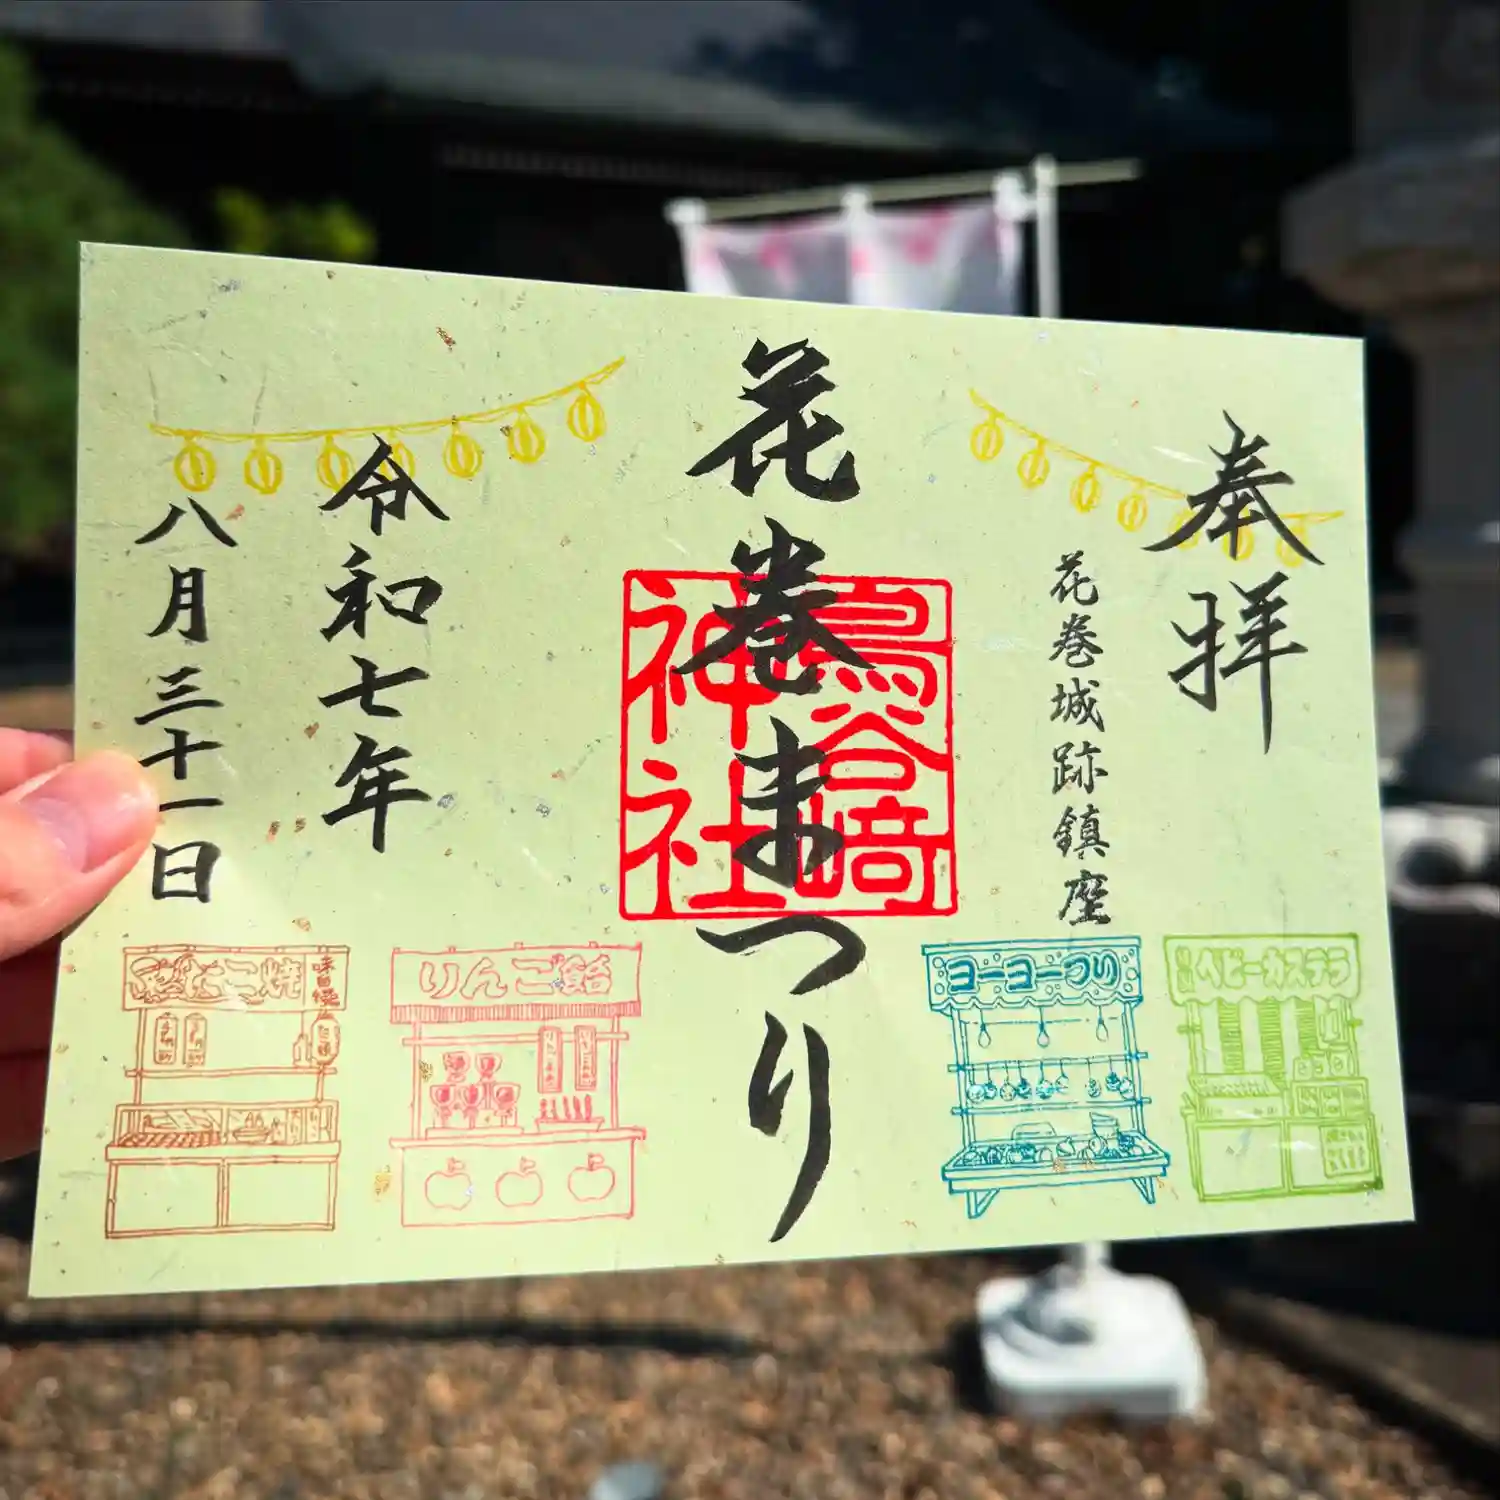 奉拝
花巻城跡鎮座
花巻まつり
鳥谷崎
神社
令和七年
八月三十一日
ベビーカステラ
ヨーヨーつり
りんご飴
たこ焼
味自慢